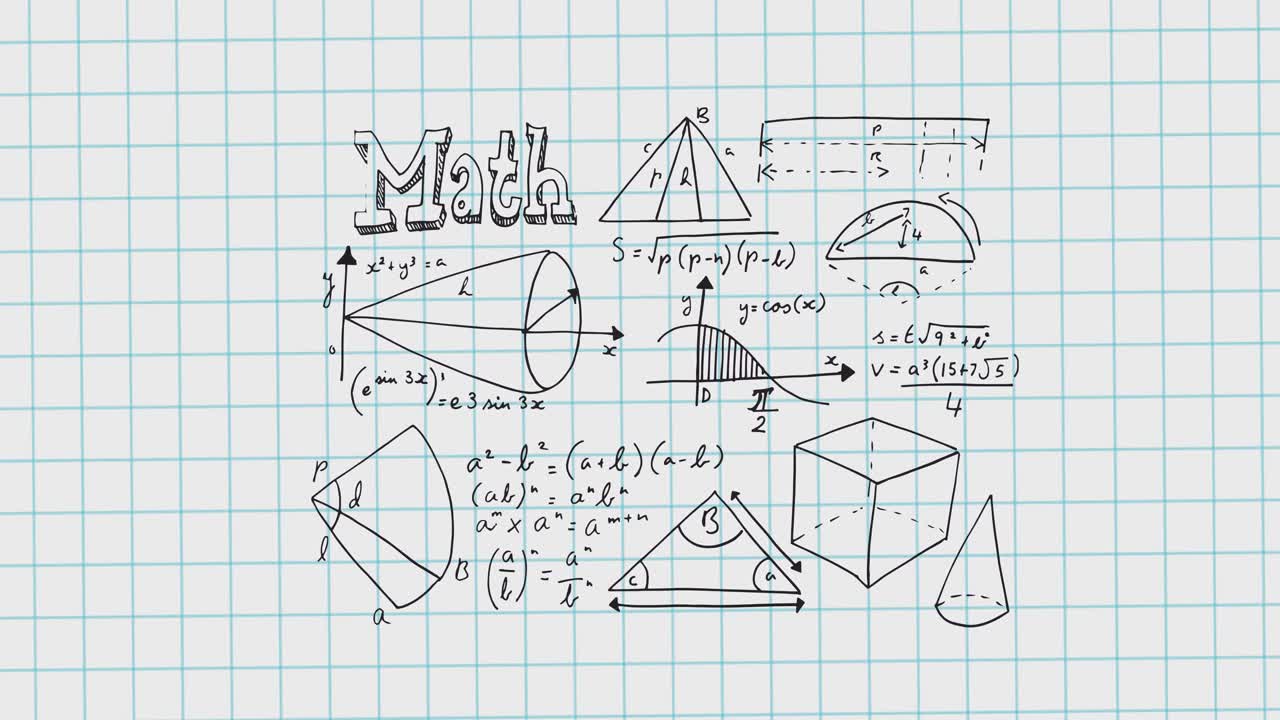 Math
B
c
a
p
l
P
R
S = √p(p-n)(p-b)
b
4
a
y
x² + y³ = a
h
o
x
(e^sin 3x)' = e 3 sin 3x
y
y = cos(x)
x
D
π/2
s = t√9² + b²
V = a³(15+7√5)/4
P
d
l
B
a
a² - b² = (a+b)(a-b)
(ab)ⁿ = aⁿbⁿ
aᵐ x aⁿ = aᵐ⁺ⁿ
(a/b)ⁿ = aⁿ/bⁿ
B
c
a